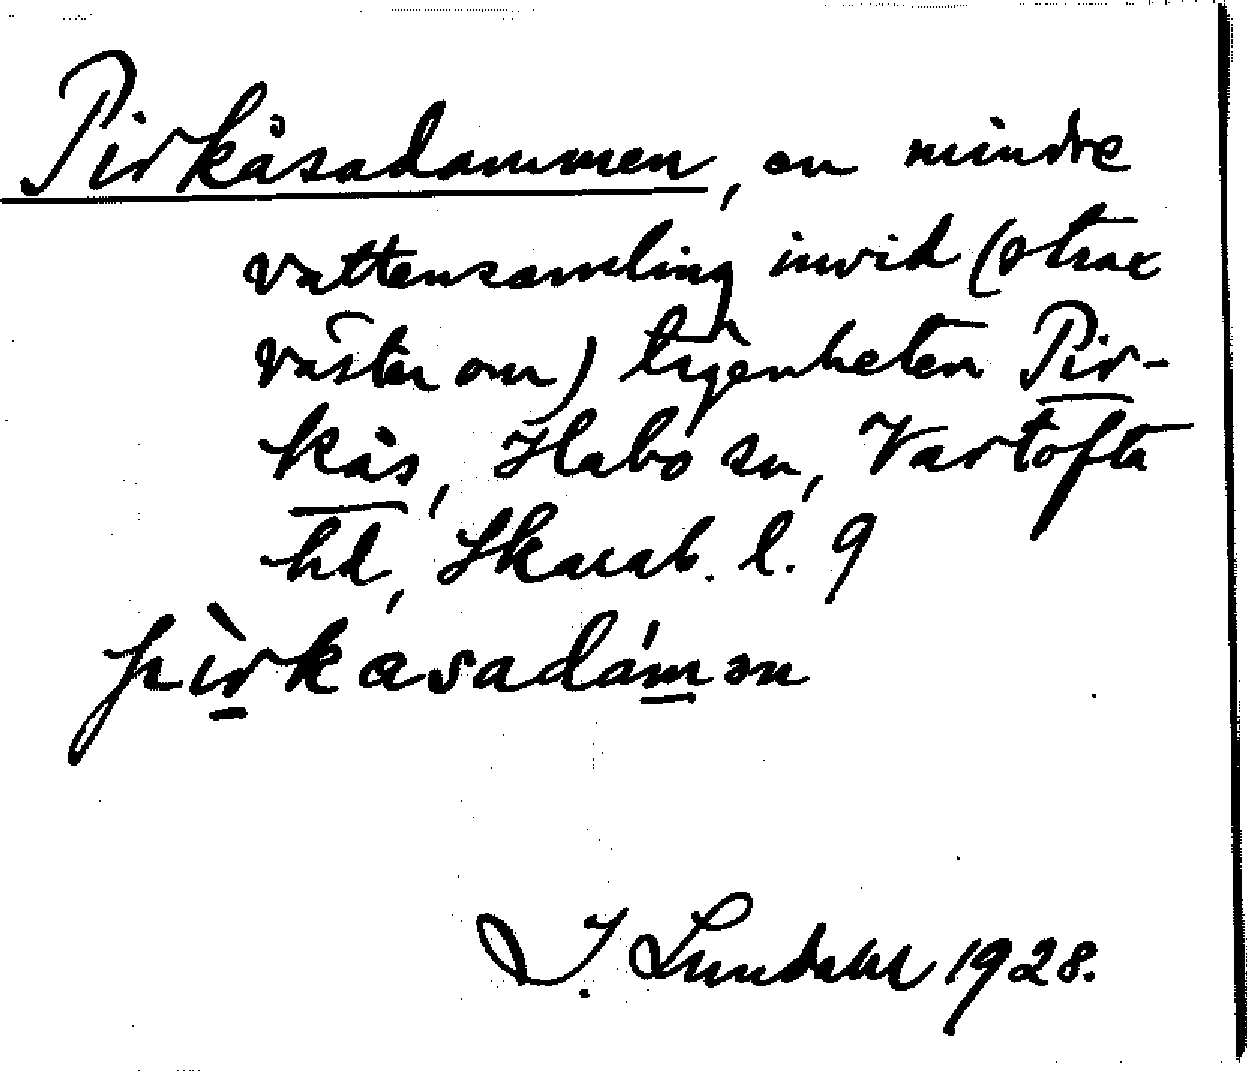 Pirkåsadammen, en mindre
vattensamling invid (strax
väster om) lägenheten Pir-
kås, Habo sn, Vartofta
hd, Skarab. l. 9
pìrkasadámən
I. Lundahl 1928.